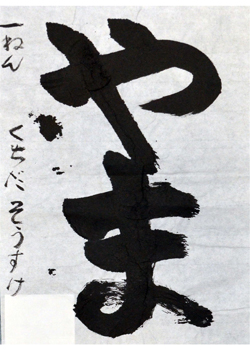 やま
一ねん くちだ そうすけ